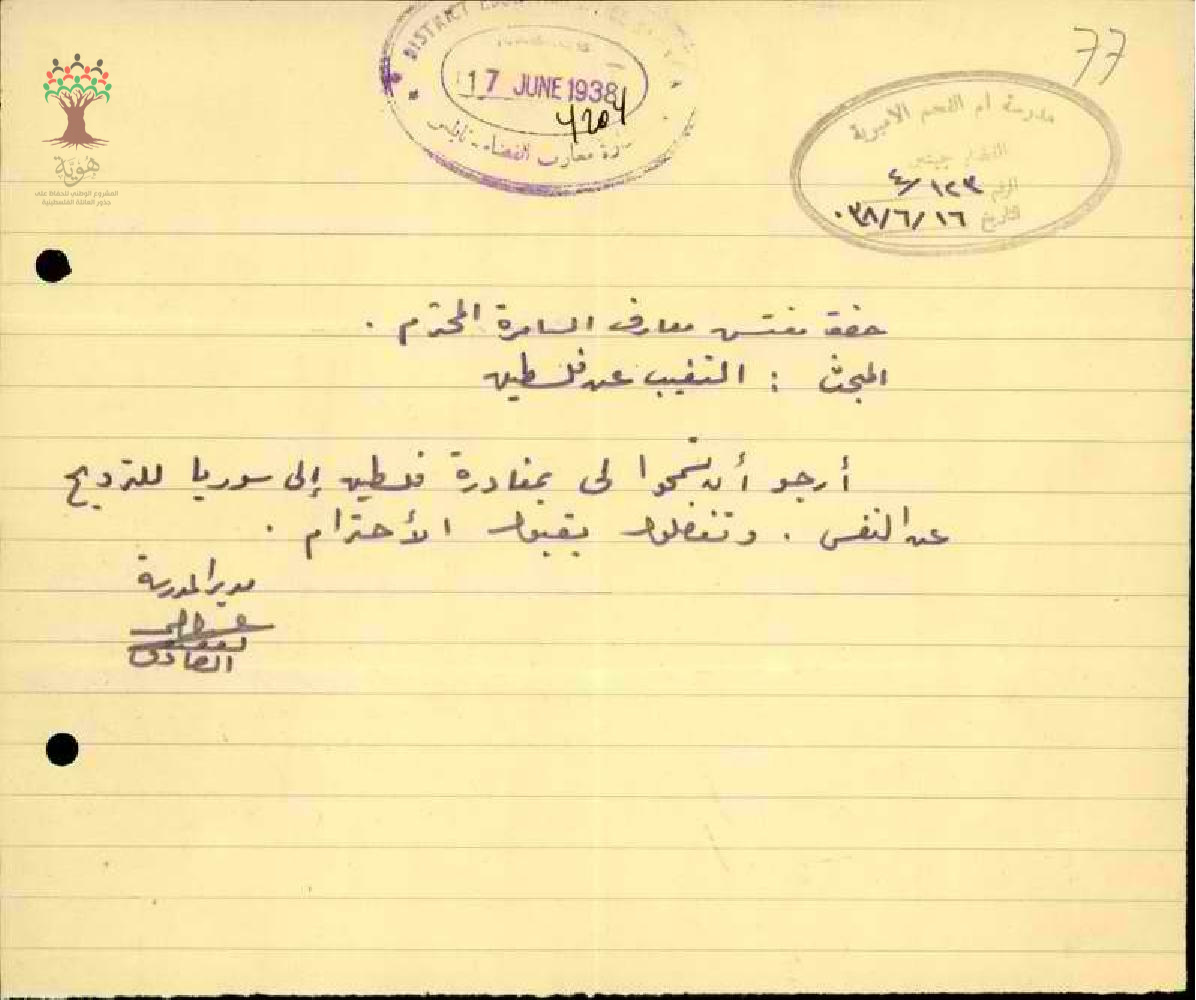 77
DISTRICT
17 JUNE 1938
4204
معارف القضاء - نابلس
مدرسة ام الفحم الاميرية
القضاء جنين
الرقم ٤/١٢٣
التاريخ ٣٨/٦/١٦
هُويّة
المشروع الوطني للحفاظ على
جذور العائلة الفلسطينية
حضرة مفتش معارف السامرة المحترم .
المبحث : التغيب عن فلسطين
أرجو أن تسمحوا لي بمغادرة فلسطين إلى سوريا للترويح
عن النفس . وتفضلوا بقبول الأحترام .
مدير المدرسة